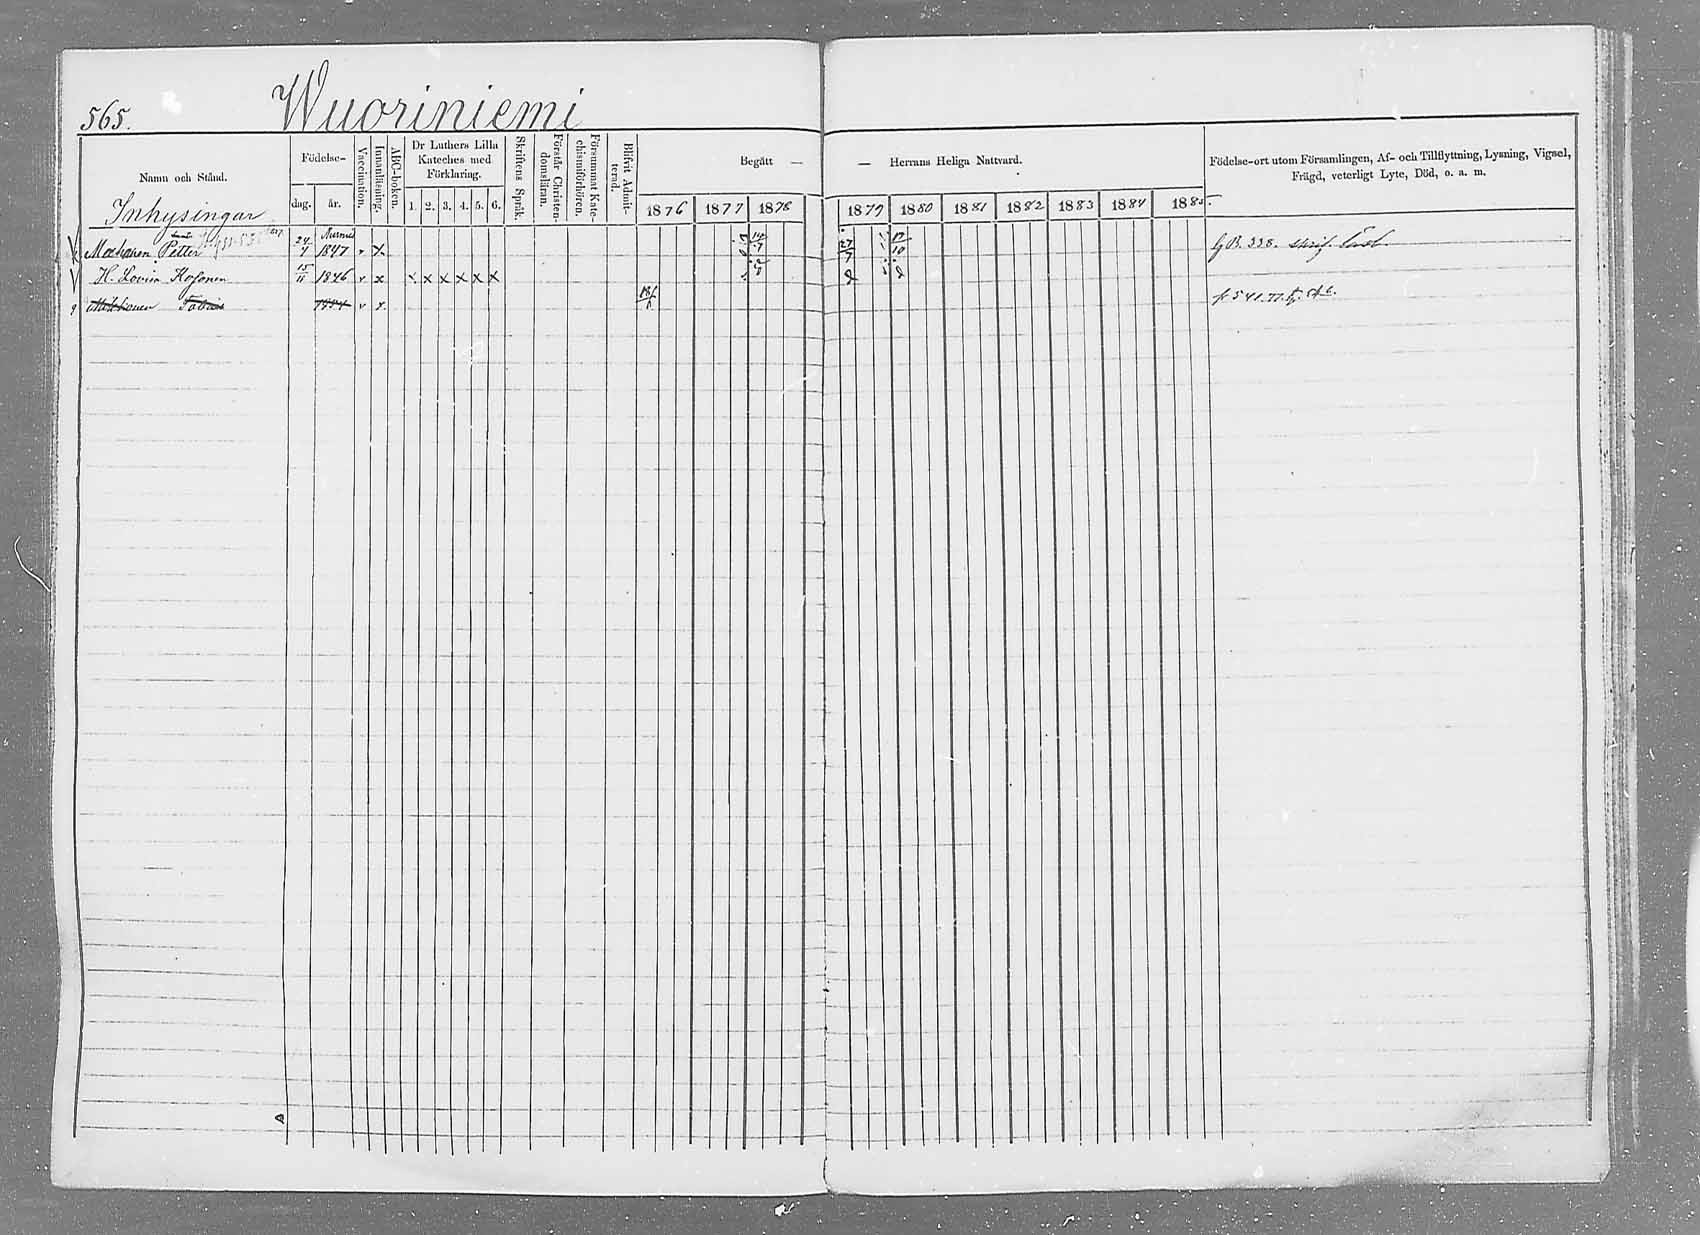 565. Wuoriniemi
Namn och Stånd.
Födelse-
dag. år.
Vaccination.
Innanläsning.
ABC-boken.
Dr Luthers Lilla
Kateches med
Förklaring.
1. 2. 3. 4. 5. 6.
Skriftens Språk.
Förstår Christen-
domsläran.
Försummat Kate-
chismiförhören.
Blifvit Admit-
terad.
Begått —
1876 1877 1878
— Herrans Heliga Nattvard.
1879 1880 1881 1882 1883 1884 1885.
Födelse-ort utom Församlingen, Af- och Tillflyttning, Lysning, Vigsel,
Frägd, veterligt Lyte, Död, o. a. m.
Inhysingar
Petter 24/7 1847 v x 27/7 17/10 228.
H. Lovisa Kosonen 15/11 1846 v x x x x x x x
Tobias v x 541. 77.